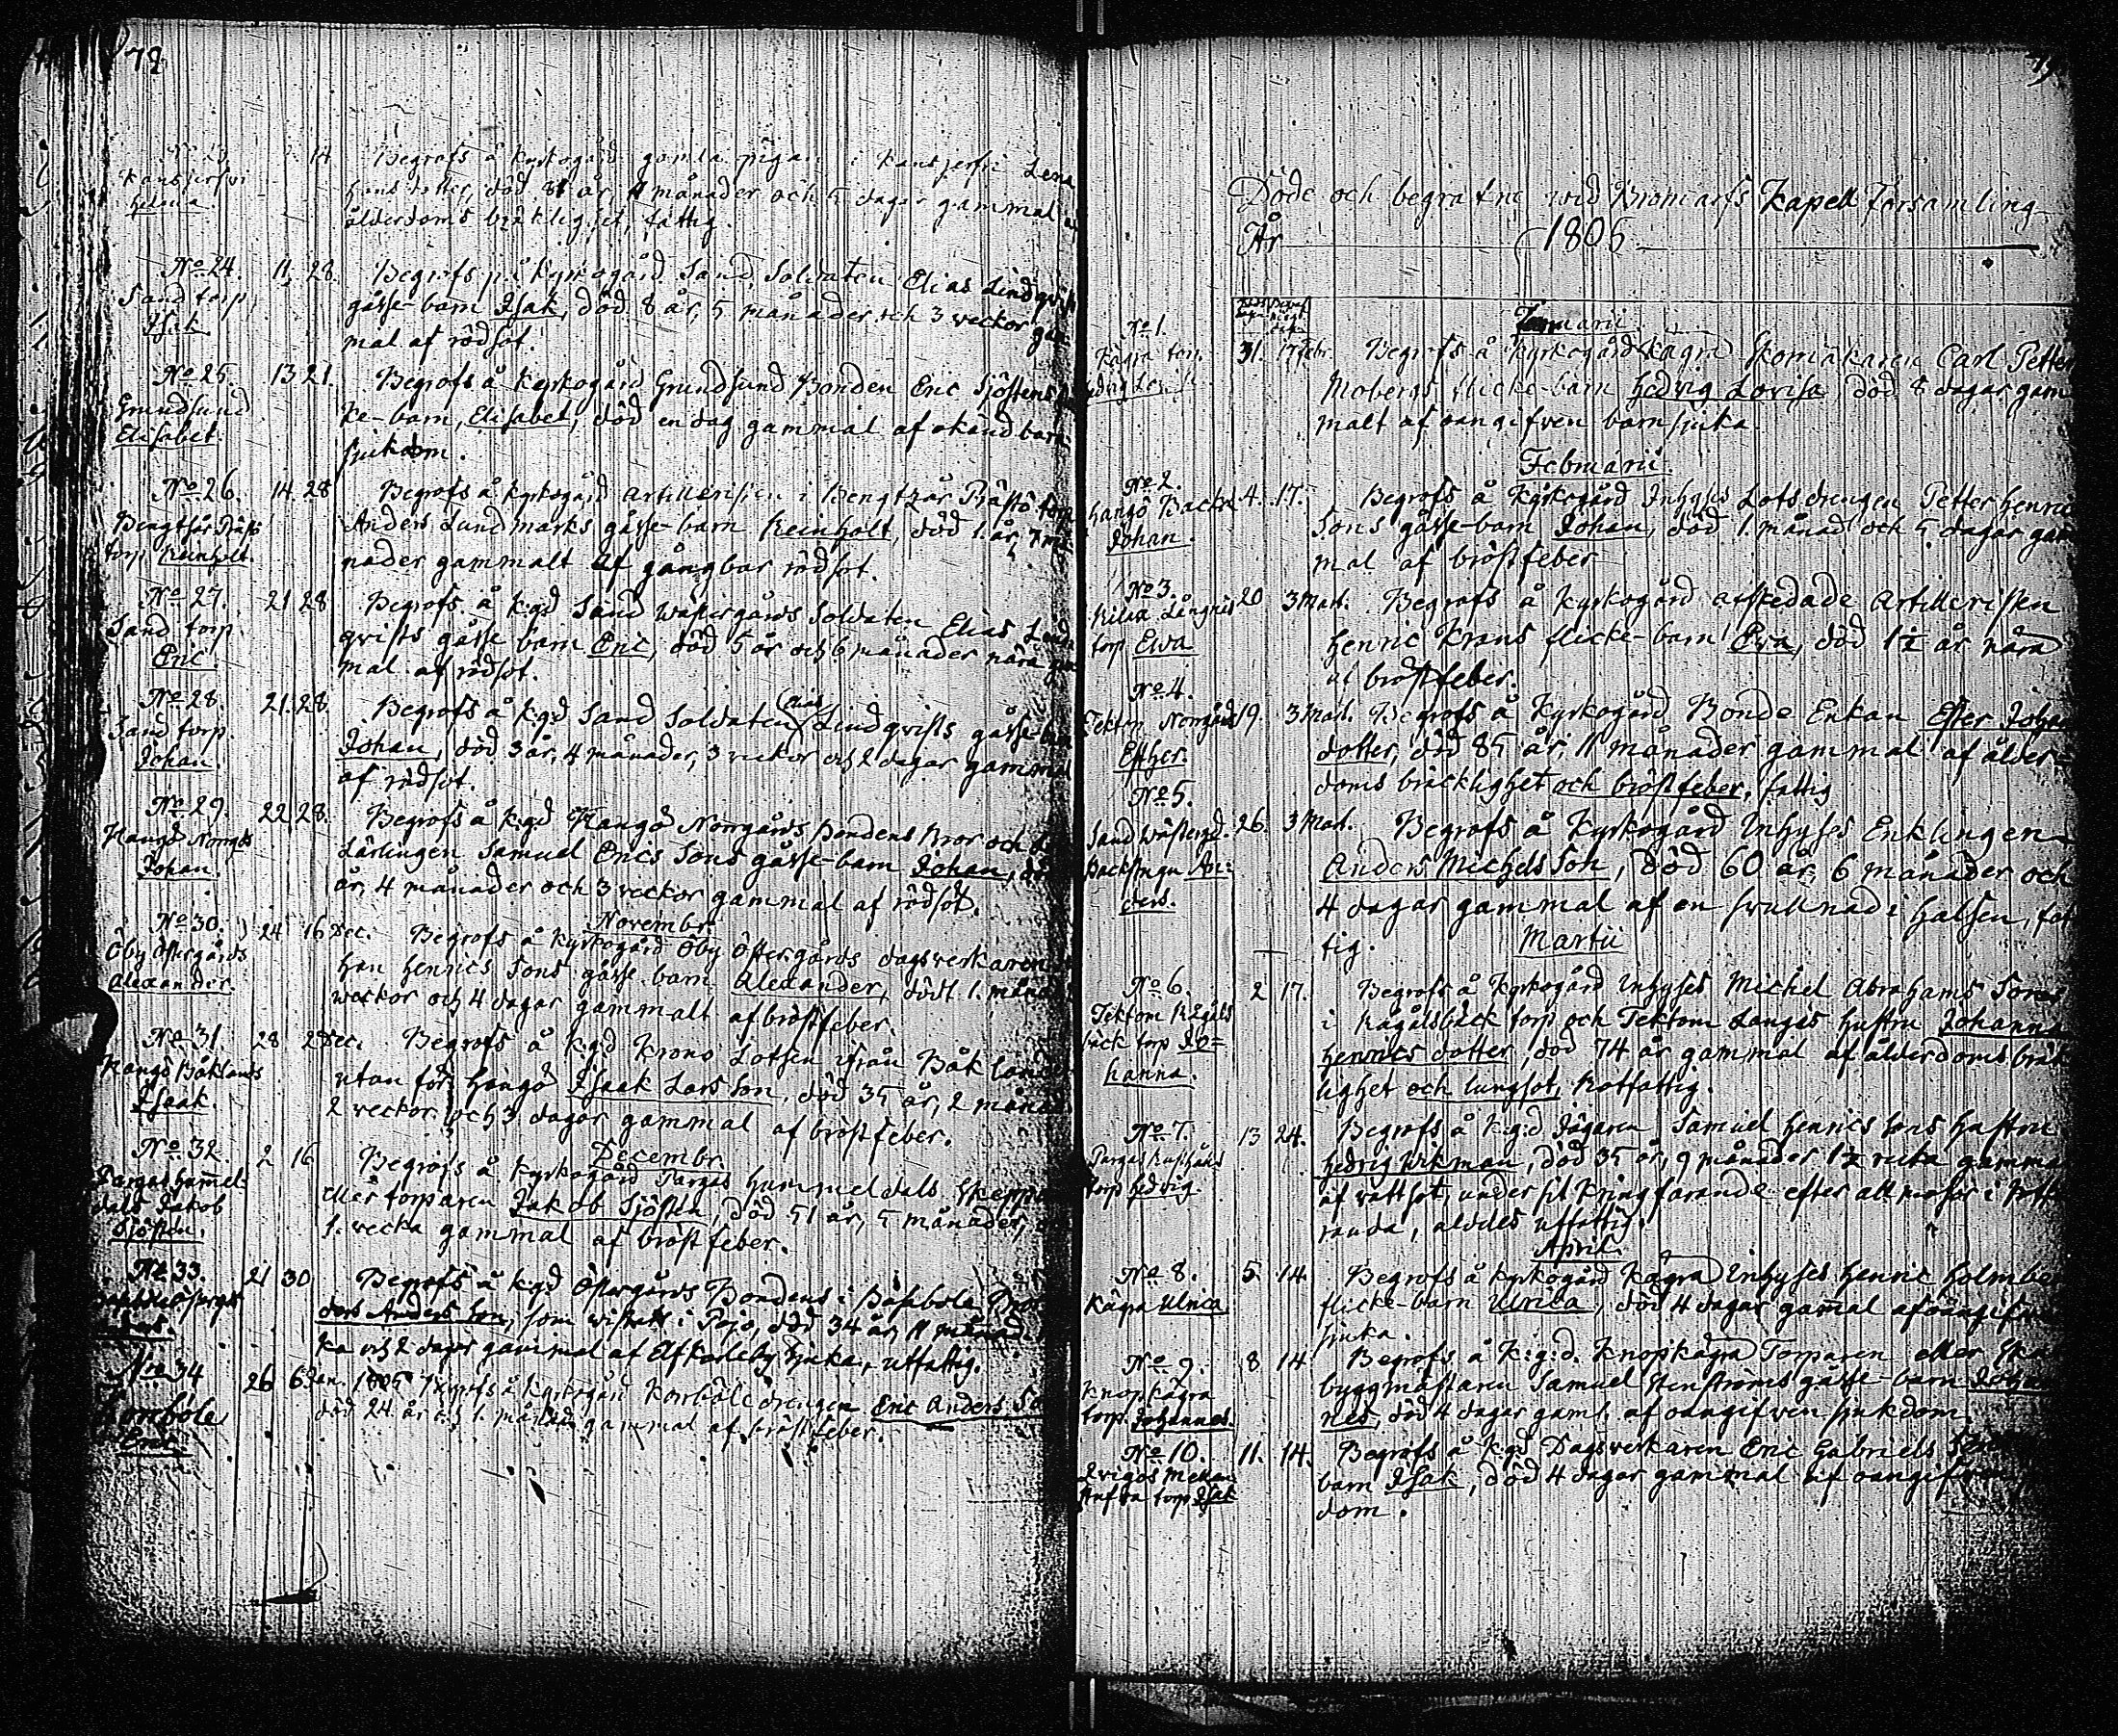 78
14. Begrofs å kyrkogård gamla pigan i Lena
dotter, död 81 år, månader och 5 dagar gammal
Helena. ålderdoms bräklighet, fattig.
No 24. 11. 28. Begrofs på kyrkogård Sand, Soldaten Elias Lindqvists
Sand torp gåsse-barn Isak, död 8 år, 5 månader och 3 weckor gam-
Isak. mal af rödsot.
No 25. 13 21. Begrofs å Kyrkogård Grundsund Bonden Eric Sjöstens
Grundsund ke-barn, Elisabet, död en dag gammal af okänd barn
Elisabet. sjukdom.
No 26. 14. 28 Begrofs å kyrkogård artilleristen i Bengtzår Prästö torp
Bengtsår Präst Anders Lundmarks gåsse-barn Reinholt, död 1. år, 7 må-
torp Reinholt. nader gammalt af gångbar rödsot.
No 27. 21 28 Begrofs å k:gd Sand Wäster gårds Soldaten Elias Lind
Sand torp qvists gåsse barn Eric, död 5 år och 6 månader nära gam
Eric. mal af rödsot.
No 28 21. 28. Begrofs å k:gd Sand Soldaten Elias Lindqvists gåsse-barn
Sand torp. Johan, död 3 år, 4 månader, 3 veckor och 2 dagar gammal
Johan. af rödsot.
No 29. 22 28. Begrofs å k:gd Hangö Norrgårds Bondens Bror och
Hangö Norrgds Lärlingen Samuel Erics Sons gåsse-barn Johan, död
Johan. år, 4 månader och 3 veckor gammal af rödsot.
Novembr.
No 30. 24 16 Dec. Begrofs å kyrkogård Öby Östergårds dagsverkaren
Öby Östergårds Henrics Sons gåsse barn Alexander, dödt 1. månad
Alexander. weckor och 4 dagar gammalt af bröstfeber.
No 31. 28 28 Dec. Begrofs å k:gd Krono Lotsen ifrån Båk landet
Hangö Båklands utan för Hangö Isaak Lars Son, död 35 år, 2 månad
Isaak. 2 veckor och 3 dagar gammal af bröstfeber.
Decembr.
No 32. 2 16 Begrofs å kyrkogård Targas Hummeldals Skeppar
Targas Hummel- eller torparen Jakob Sjösten, död 51 år, 5 månader,
dals Jakob 1. vecka gammal af bröstfeber.
Sjösten.
No 33. 21 30 Begrofs å k:gd Östergårds Bondens i Båsabola Bror
ders Anders Son, som wistats i Pojo, död 34 år, 11 månad.
ka och 2 dagar gammal af Elfkarleby sjuka, utfattig.
Nro 34 26 6 Jan. Begrofs å kyrkogård Korsböle drengen Eric Anders So
Korsböle död 24. år och 1. månad gammal af bröstfeber.
Eric
Döde och begrafne wid Bromarfs Kapell Församling
År 1806
Januarii.
No 1. 31. 17 Febr. Begrofs å kyrkogård Kagra Skomakaren Carl Petter
Kagra torp Mobergs flicke-barn Hedvig Lovisa, död 8 dagar gam
malt af oangifven barnsjuka.
Februarii.
No 2. 4. 17. Begrofs å Kyrkogård Inhyses Lotsdrengen Petter Henric
Hangö Backa Sons gåsse-barn Johan, död 1. månad och 5 dagar gam
Johan. mal af bröstfeber
No 3. 20 3 Mart. Begrofs å kyrkogård afskedade Artilleristen
Henric Krans flicke-barn Eva, död 1½ år nära
torp Ewa af bröstfeber.
No 4. 19. 3 Mart. Begrofs å Kyrkogård Bonde Enkan Ester Johans
Tektom Norrgårds dotter, död 85 år, 11 månader gammal af ålder-
Esther. doms bräcklighet och bröstfeber, fattig
No 5. 26. 3 Mart. Begrofs å Kyrkogård Inhyses Enklingen
Sand Wästergd. Anders Michels Son, död 60 år, 6 månader och
Backstugu An- 4 dagar gammal af en svullnad i halsen, fat
ders. tig.
Martii
No 6. 2 17. Begrofs å Kyrkogård Inhyses Michel Abrahams Sons
Tektom Kågåls i Kågålsbäck torp och Tektom Langas hustru Johanna
bäck torp Jo- Henrics dotter, död 74 år gammal af ålderdoms bräk
hanna. lighet och lungsot, Rotfattig.
No 7. 13 24. Begrofs å k:gd Jägaren Samuel Henrics Sons hustru
Hedvig Wikman, död 35 år, 9 månader 1½ vecka gammal
torp Hedvig. af vattsot, under sit kringfarande efter allmosor i
randa, aldeles utfattig.
April.
No 8. 5 14. Begrofs å kyrkogård Kagra Inhyses Henric Holmber
Kågra Ulrica flicke-barn Ulrica, död 4 dagar gammal af oangifven
sjuka.
No 9. 8 14 Begrofs å K:g:d. Knopkägra Torparen eller Ska
Knopkägra byggmästaren Samuel Stenströms gåsse-barn Johan
torp Johannes. nes, död 4 dagar gaml. af oangifven sjukdom.
No 10. 11. 14. Begrofs å k:gd Dagsverkaren Eric Gabriels Sons
barn Isak, död 4 dagar gammal af oangifven
torp Isak dom.